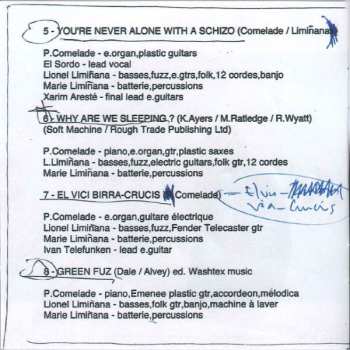 5 - YOU'RE NEVER ALONE WITH A SCHIZO (Comelade / Limiñana)
P.Comelade - e.organ,plastic guitars
El Sordo - lead vocal
Lionel Limiñana - basses,fuzz,e.gtrs,folk,12 cordes,banjo
Marie Limiñana - batterie,percussions
Xarim Aresté - final lead e.guitars
6 - WHY ARE WE SLEEPING ? (K.Ayers / M.Ratledge / R.Wyatt)
(Soft Machine / Rough Trade Publishing Ltd)
P.Comelade - piano,e.organ,gtr,plastic saxes
L.Limiñana - basses,fuzz,electric guitars,folk gtr,12 cordes
Marie Limiñana - batterie,percussions
7 - EL VICI BIRRA-CRUCIS (Comelade) - El vici
via-Crucis
P.Comelade - e.organ,guitare électrique
Lionel Limiñana - basses,fuzz,Fender Telecaster gtr
Marie Limiñana - batterie,percussions
Ivan Telefunken - lead e.guitar
8 - GREEN FUZ (Dale / Alvey) ed. Washtex music
P.Comelade - piano,Emenee plastic gtr,accordeon,mélodica
Lionel Limiñana - basses,folk gtr,banjo,machine à laver
Marie Limiñana - batterie,percussions